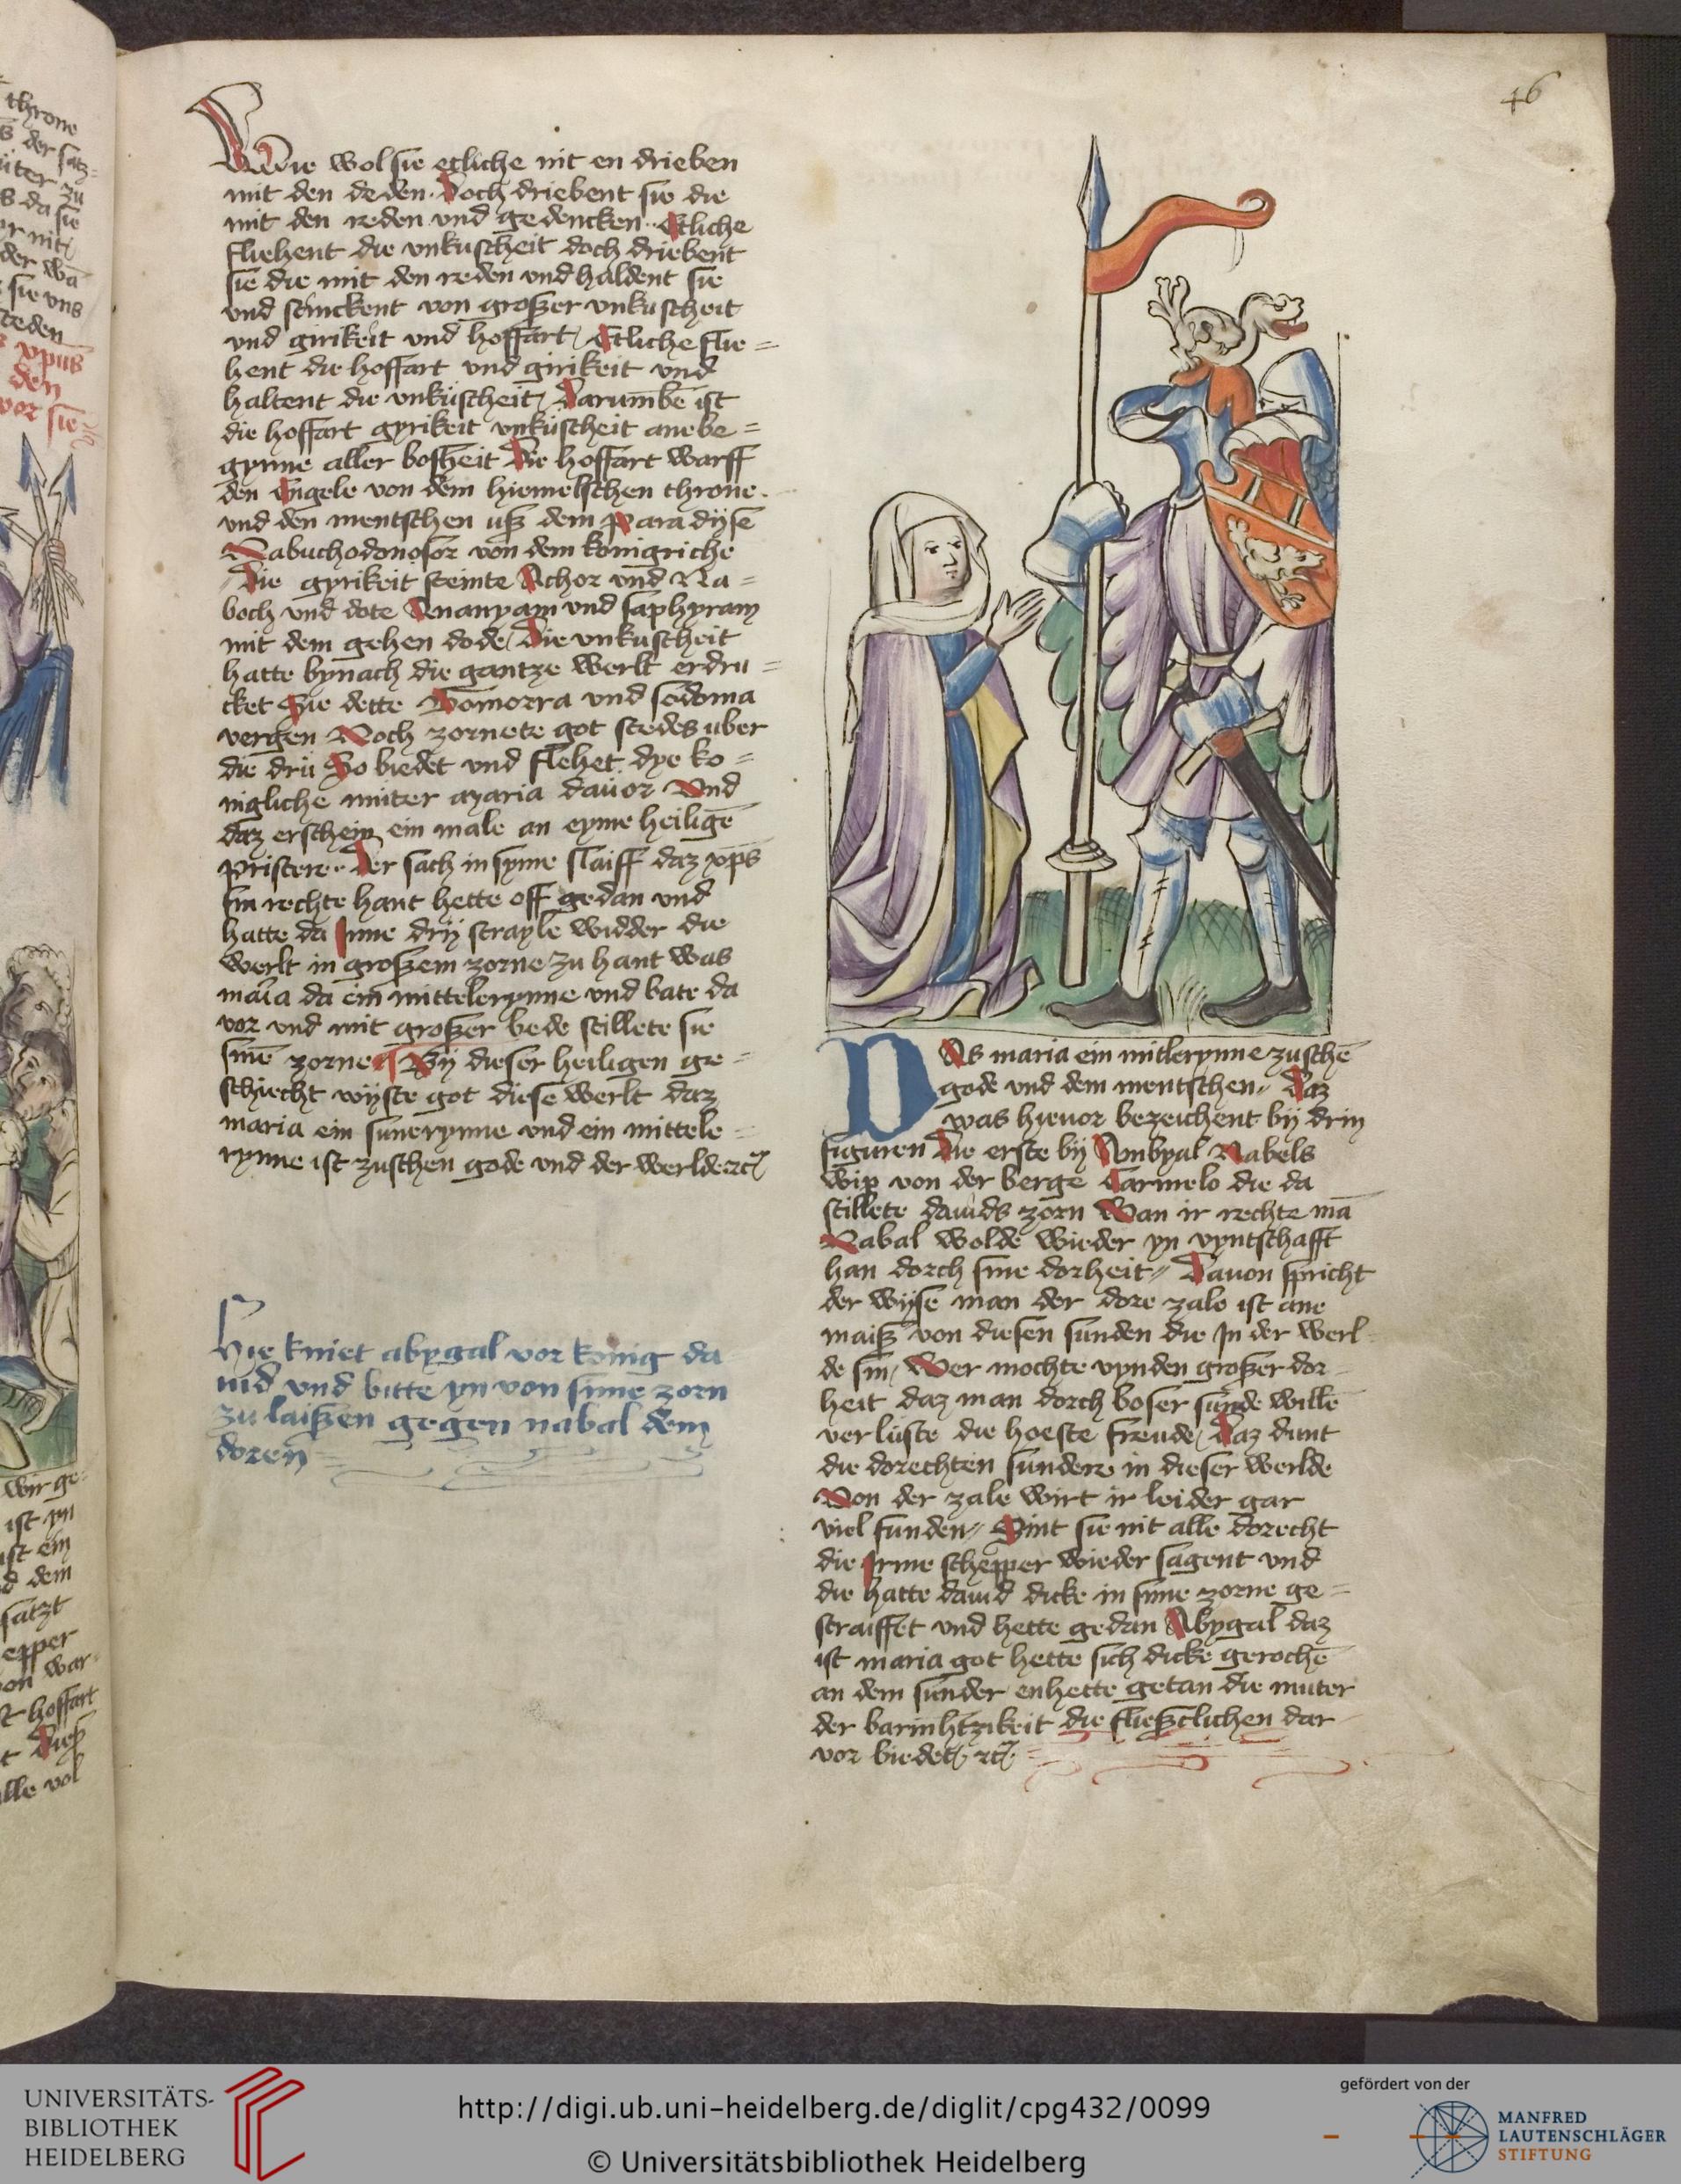 46
Wie wol sie etliche nit en drieben
mit den deden. Doch driebent sie die
mit den reden vnd gedencken. Etliche
fliehent die vnkuscheit doch driebent
sie die mit den reden vnd haldent sie
vnd stinckent von großer vnkuscheit
vnd girikeit vnd hoffart / Etliche flie=
hent die hoffart vnd girikeit vnd
haltent die vnkúscheit / Darumbe ist
die hoffart gyrikeit vnkúscheit anebe=
gynne aller bosheit Die hoffart warff
den Engele von dem hiemelschen throne.
vnd den mentschen uß dem paradyse
Nabuchodonosor von dem konigriche
Die gyrikeit steinte Achor vnd Na=
both vnd dote Ananyam vnd saphyram
mit dem gehen dode / Die vnkuscheit
hatte bynach die gantze werlt erdru=
cket Sie dette Gomorra vnd sodoma
vergen Noch zornete got stedes uber
die drú So biedet vnd flehet dye ko=
nigliche múter maria dauor Vnd
daz erschein ein male an eyme heilige
pristere. Der sach in syme slaiff daz xps
sin rechte hant hette off gedan vnd
hatte da Inne dry strayle widder die
werlt in großem zorne zu hant was
maria da ein mittelerynne vnd bate da
vor vnd mit großer bede stillete sie
sine zorne By dieser heiligen ge=
schiecht wyste got diese werlt daz
maria ein sunerynne vnd ein mittele=
rynne ist zuschen gode vnd der werlde etc
Hie kniet abygal vor konig da
uid vnd bitte yn von sime zorn
zu laißen gegen nabal dem
doren
DAs maria ein mitlerynne zusche
gode vnd dem mentschen. Daz
was hieuor bezeichent by drin
figuren Die erste by Ambyal Nabels
wip von der berge Carmelo die da
stillete dauids zorn Wan ir rechte ma
Nabal wolde wieder yn vyntschafft
han dorch sine dorheit Dauon spricht
der wyse man der dore zale ist ane
maiß von diesen sunden die In der werl
de sin / Wer mochte vynden großer dor
heit daz man dorch boser súnde wille
verlúste die hoeste freude / Daz dunt
die dorechten sundere in dieser werlde
Von der zale wirt ir leider gar
viel funden Sint sie nit alle dorecht
die Irme schepper wieder sagent vnd
die hatte dauid dicke in sime zorne ge=
straiffet vnd hette gedan Abygal daz
ist maria got hette sich dicke geroche
an dem sunder enhette getan die muter
der barmhtzikeit die fließclichen dar
vor biedet etc
UNIVERSITÄTS-
BIBLIOTHEK
HEIDELBERG
http://digi.ub.uni-heidelberg.de/diglit/cpg432/0099
© Universitätsbibliothek Heidelberg
gefördert von der
MANFRED
LAUTENSCHLÄGER
STIFTUNG